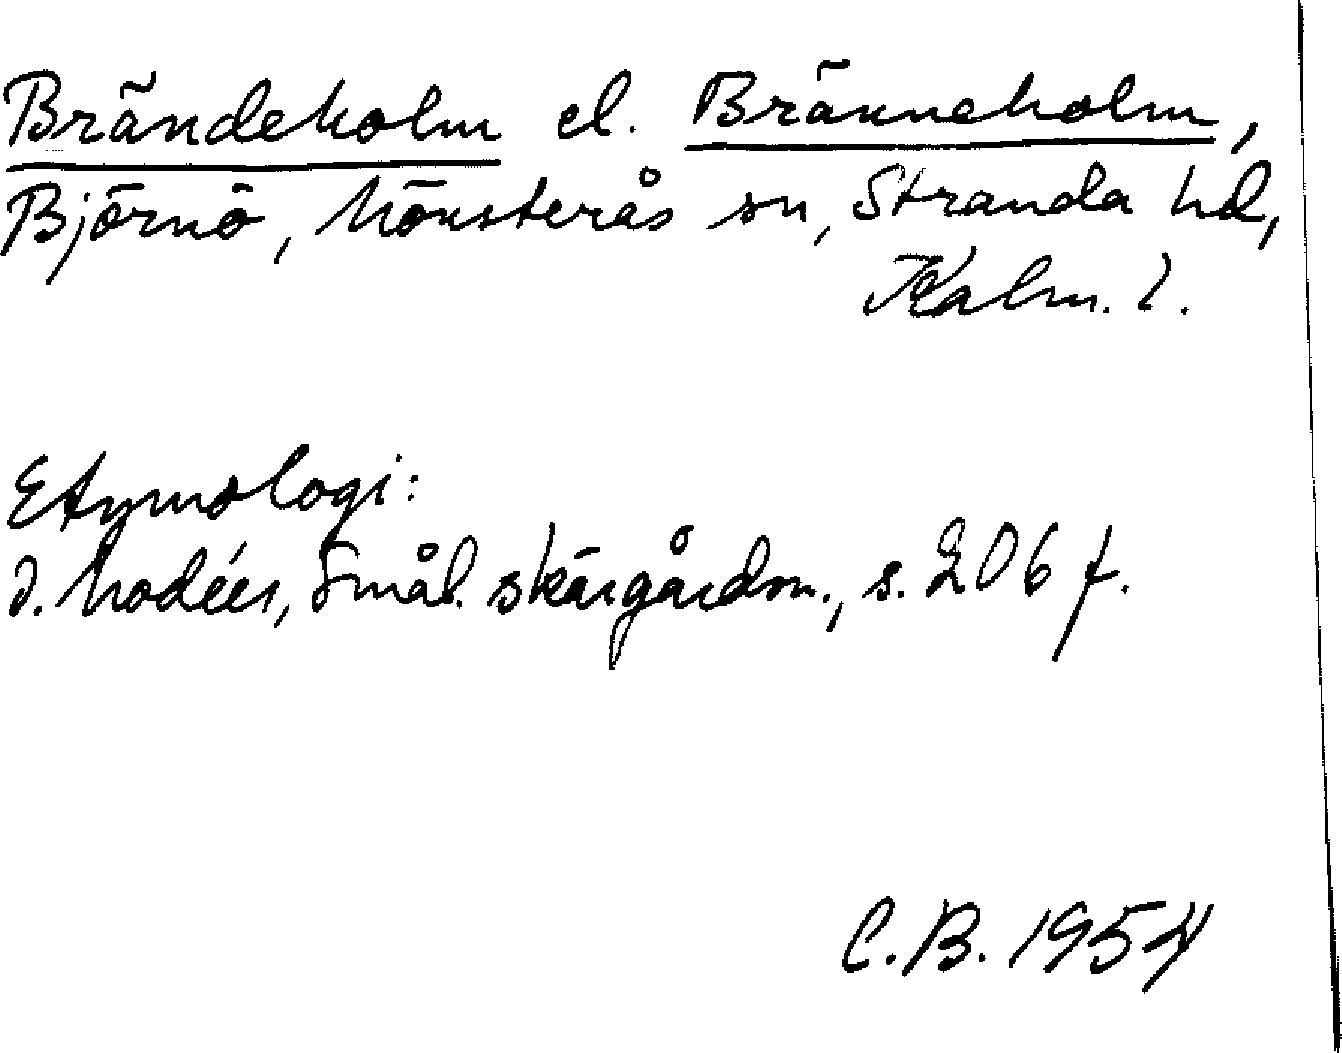 Brändeholm el. Bränneholm,
Björnö, Mönsterås sn, Stranda hd,
Kalm. l.
Etymologi:
I. Modéer, Smål. skärgårdsn., s. 206 f.
C.B. 1954